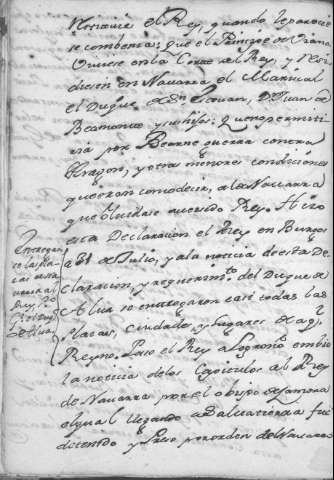 el Rey, quando le parecie
se combenia; que el Principe de Viana
Viviese en la Corte del Rey, y residiesen
en Navarra el Mariscal
el Duque de Sn Estevan, D. Juan de
Beamonte y sus hijos: que no permiti
ria por Bearne guerra contra
Aragon, y otras menores condiciones
que eran como decir, a la Navarra
que olvidase a su Rey. Hizo
esta Declaracion el Rey en Burgos
a 31 de Julio, y a la noticia de esta De
claracion, y requerimto. del Duque de
Alva se entregaron casi todas las
Plazas, ciudades, y lugares de aql.
Reyno. Paso el Rey a Logroño embio
la noticia de los Capitulos al Rey
de Navarra por el obispo de Zamora
el qual llegando a Salvatierra fue
detenido y preso por orden del Navarro
Entregan
se las Pla
zas
al
Rey
Alva